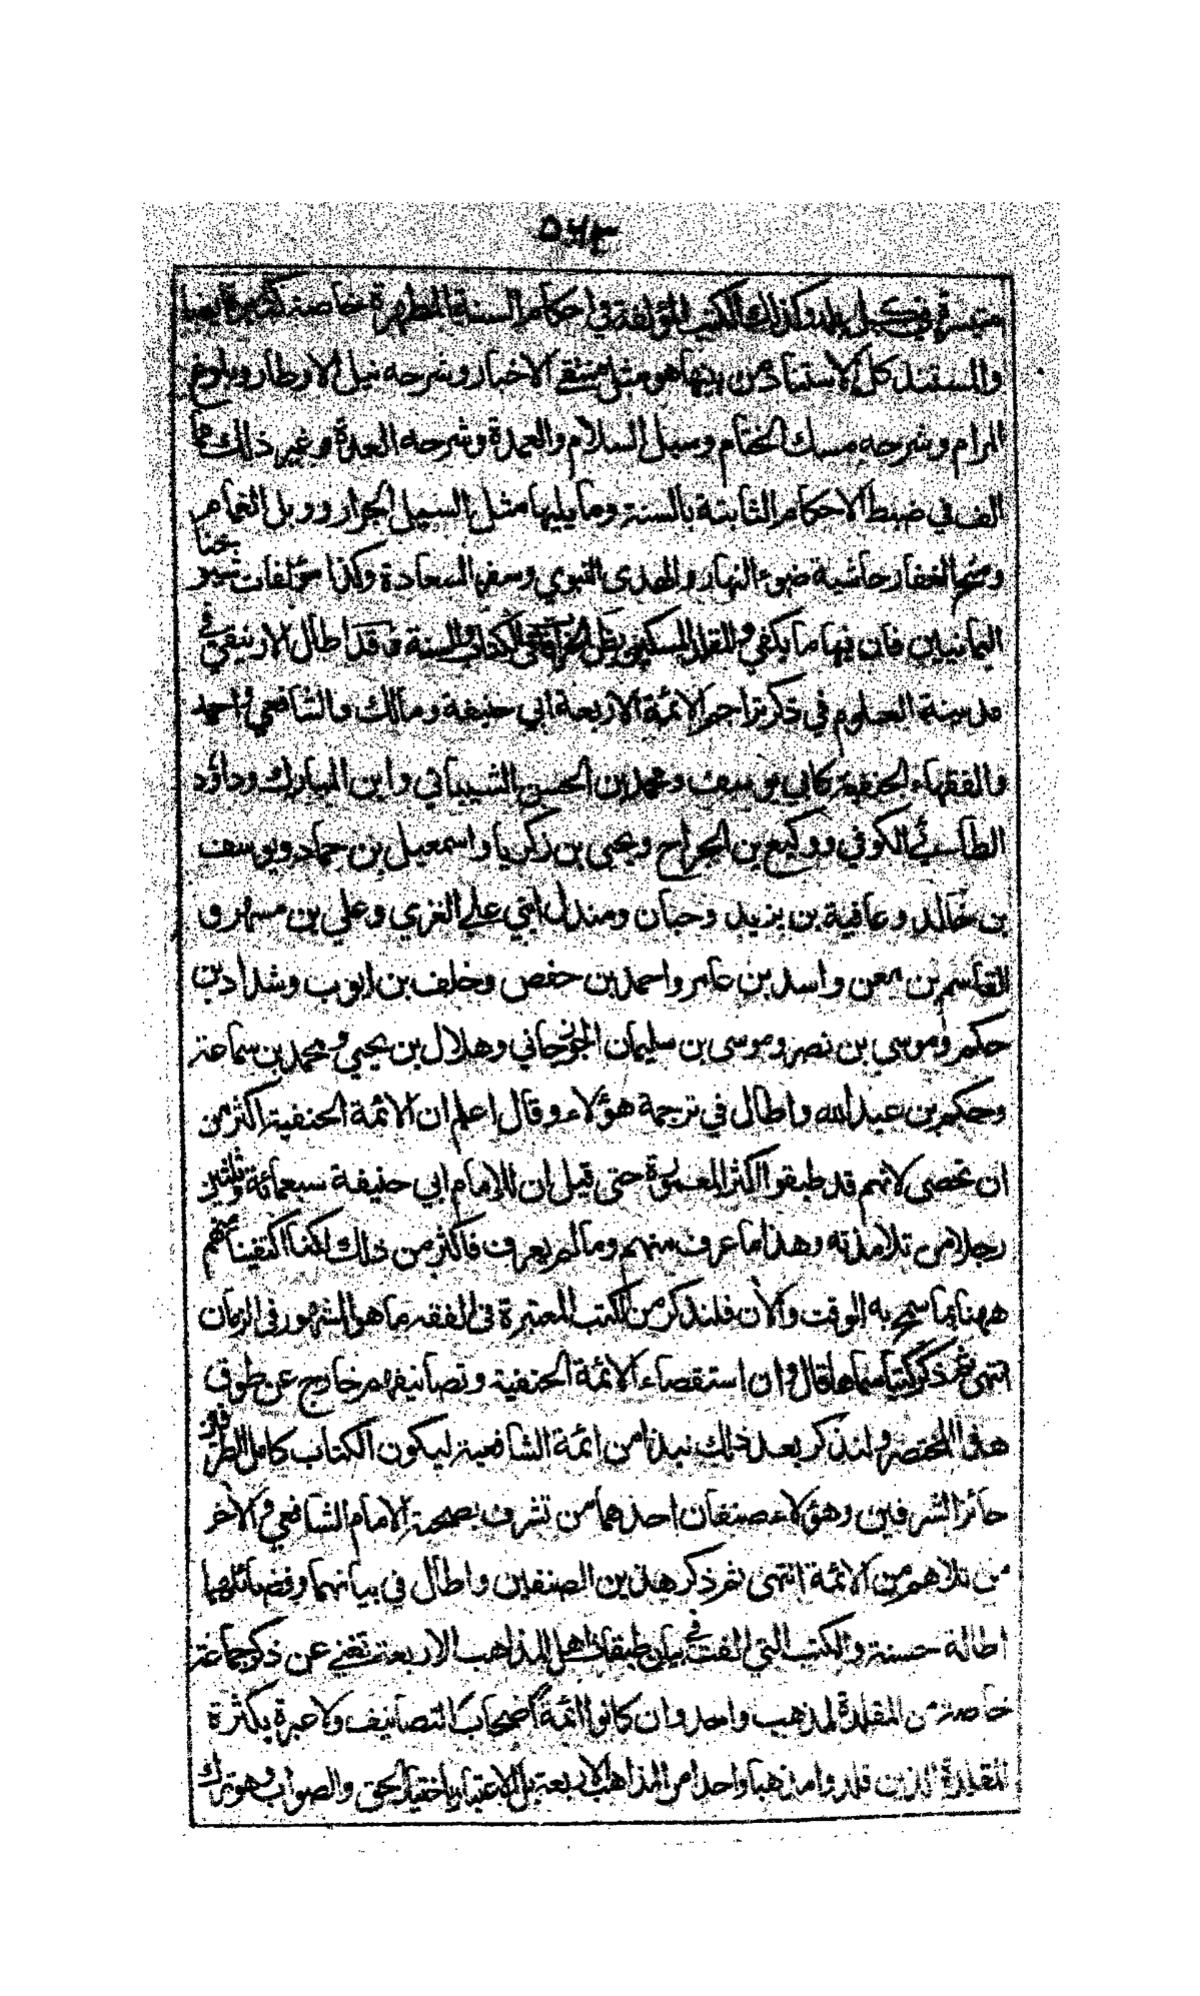 ٥٦٣
ميسرة في كل بلد وكذلك الكتب المؤلفة في احكام السنة المطهرة خاصة كثيرة ايضا
والمستند كل الاستناد من بينها هو مثل منتقى الاخبار وشرحه نيل الاوطار وبلوغ
المرام وشرحه مسك الختام وسبل السلام والعمدة وشرحه العدة وغير ذلك مما
الف في ضبط الاحكام الثابتة بالسنة وما يليها مثل السيل الجرار ووبل الغمام
ومنح الغفار حاشية ضوء النهار والهدى النبوي وسفر السعادة وكذا مؤلفات شيوخنا
اليمانيين فان فيها ما يكفي والكتاب والسنة وقد اطال الارنيقي في
مدينة العلوم في ذكر تراجم الائمة الاربعة ابي حنيفة ومالك والشافعي واحمد
والفقهاء الحنفية كابي يوسف ومحمد بن الحسن الشيباني وابن المبارك وداؤد
الطائي الكوفي ووكيع بن الجراح ويحيى بن زكريا واسمعيل بن حماد ويوسف
بن خالد وعافية بن يزيد وحبان ومندل ابني علي الغزي وعلي بن مسهر و
القاسم بن معن واسد بن عامر واحمد بن حفص وخلف بن ايوب وشداد بن
حكم وموسى بن نصر وموسى بن سليمان الجوزجاني وهلال بن يحيى ومحمد بن سماعة
وحكم بن عبد الله واطال في ترجمة هؤلاء وقال اعلم ان الائمة الحنفية اكثر من
ان تحصى لانهم قد طبقوا اكثر المعمورة حتى قيل ان للامام ابي حنيفة سبعمائة وثلثين
رجلا من تلامذته وهذا ما عرف منهم وما لم يعرف فاكثر من ذلك لكنا اكتفينا منهم
ههنا بما سمح به الوقت والآن فلنذكر من الكتب المعتبرة في الفقه ما هو المشهور في الزمان
انتهى ثم ذكر كتبا منها قال وان استقصاء الائمة الحنفية وتصانيفهم خارج عن طوق
هذا المختصر ولنذكر بعد ذلك نبذا من ائمة الشافعية ليكون الكتاب كامل الطرفين
حائز الشرفين وهؤلاء صنفان احدهما من تشرف بصحبة الامام الشافعي والآخر
من تلاهم من الائمة انتهى ثم ذكر هذين الصنفين واطال في بيانهما وفضائلهما
اطالة حسنة والكتب التي الفت في بيان طبقات اهل المذاهب الاربعة تغني عن ذكر جماعة
خاصة من المقلدة لمذهب واحد وان كانوا ائمة اصحاب التصانيف ولا عبرة بكثرة
المقلدة الذين قلدوا مذهبا واحدا من المذاهب الاربعة بل الاعتبار باختيار الحق والصواب وهو ترك